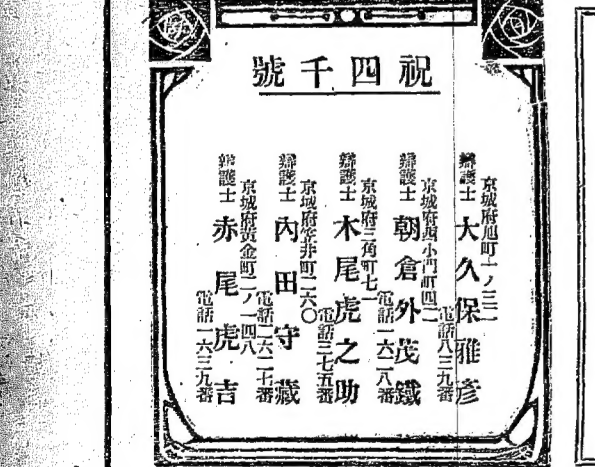 祝四千號
京城府旭町一ノ三二
辯護士 大久保雅彥
電話八三九番
京城府西小門町四二
辯護士 朝倉外茂鐵
電話一六二八番
京城府三角町七一
辯護士 木尾虎之助
電話三七五番
京城府笠井町二六〇
辯護士 內田守藏
電話二六二十番
京城府黃金町二ノ一四八
辯護士 赤尾虎吉
電話一六三九番